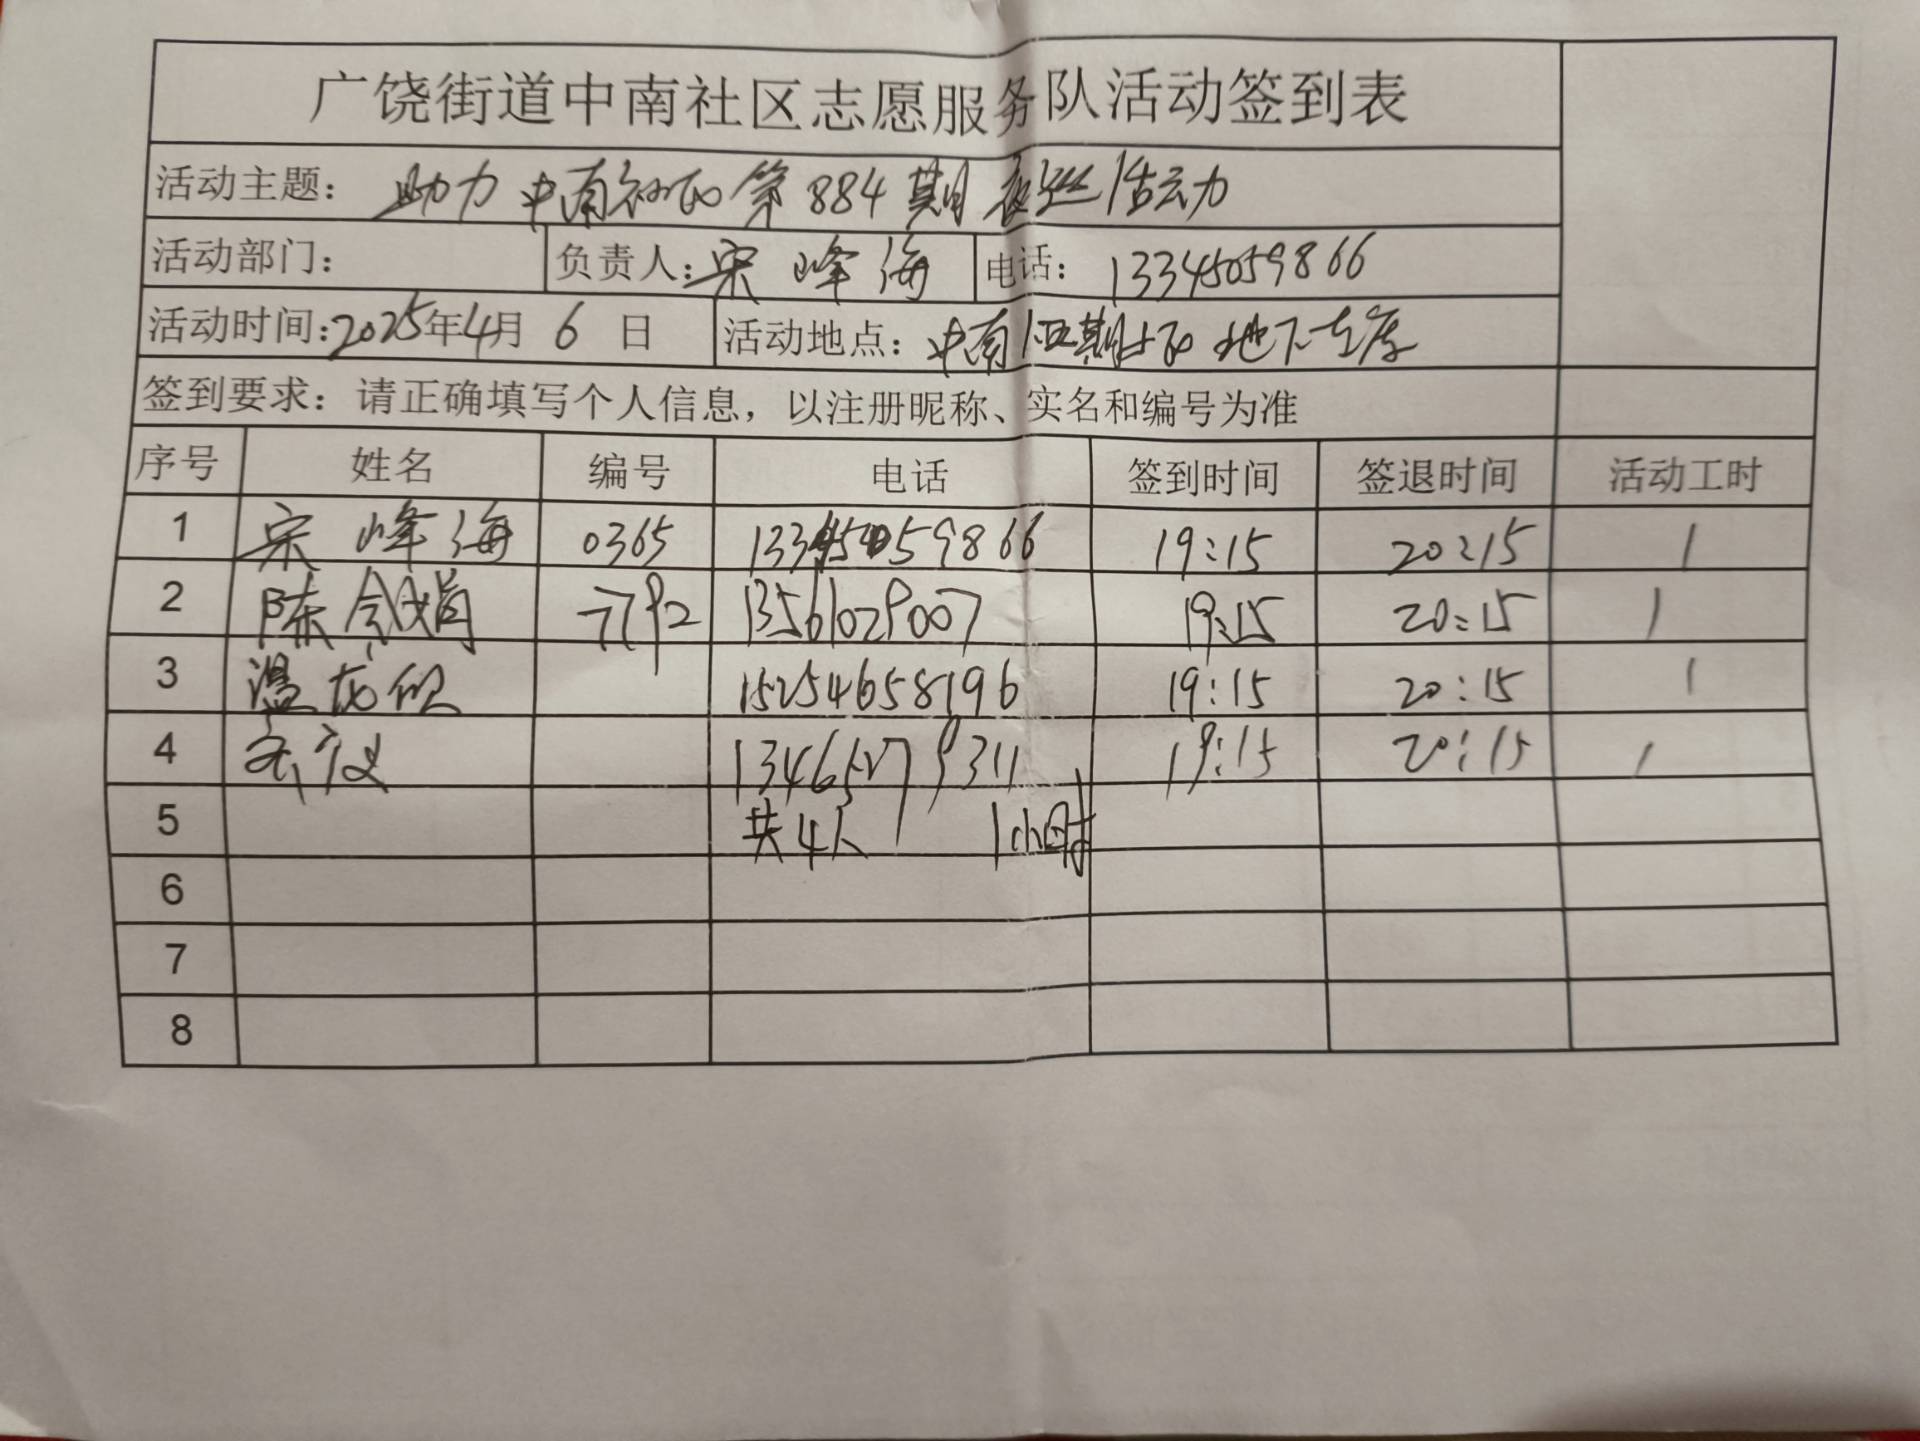 广饶街道中南社区志愿服务队活动签到表
活动主题： 助力中南社区第884期夜巡活动
活动部门： 负责人：宋峰海 电话：13345059866
活动时间：2025年4月6日 活动地点：中南 期 地下车库
签到要求：请正确填写个人信息，以注册昵称、实名和编号为准
序号 姓名 编号 电话 签到时间 签退时间 活动工时
1 宋峰海 0365 13345059866 19:15 20:15 1
2 陈 娟 7792 13561029007 19:15 20:15 1
3 温 欣 15254658196 19:15 20:15 1
4 19:15 20:15 1
5 共4人 1小时
6
7
8